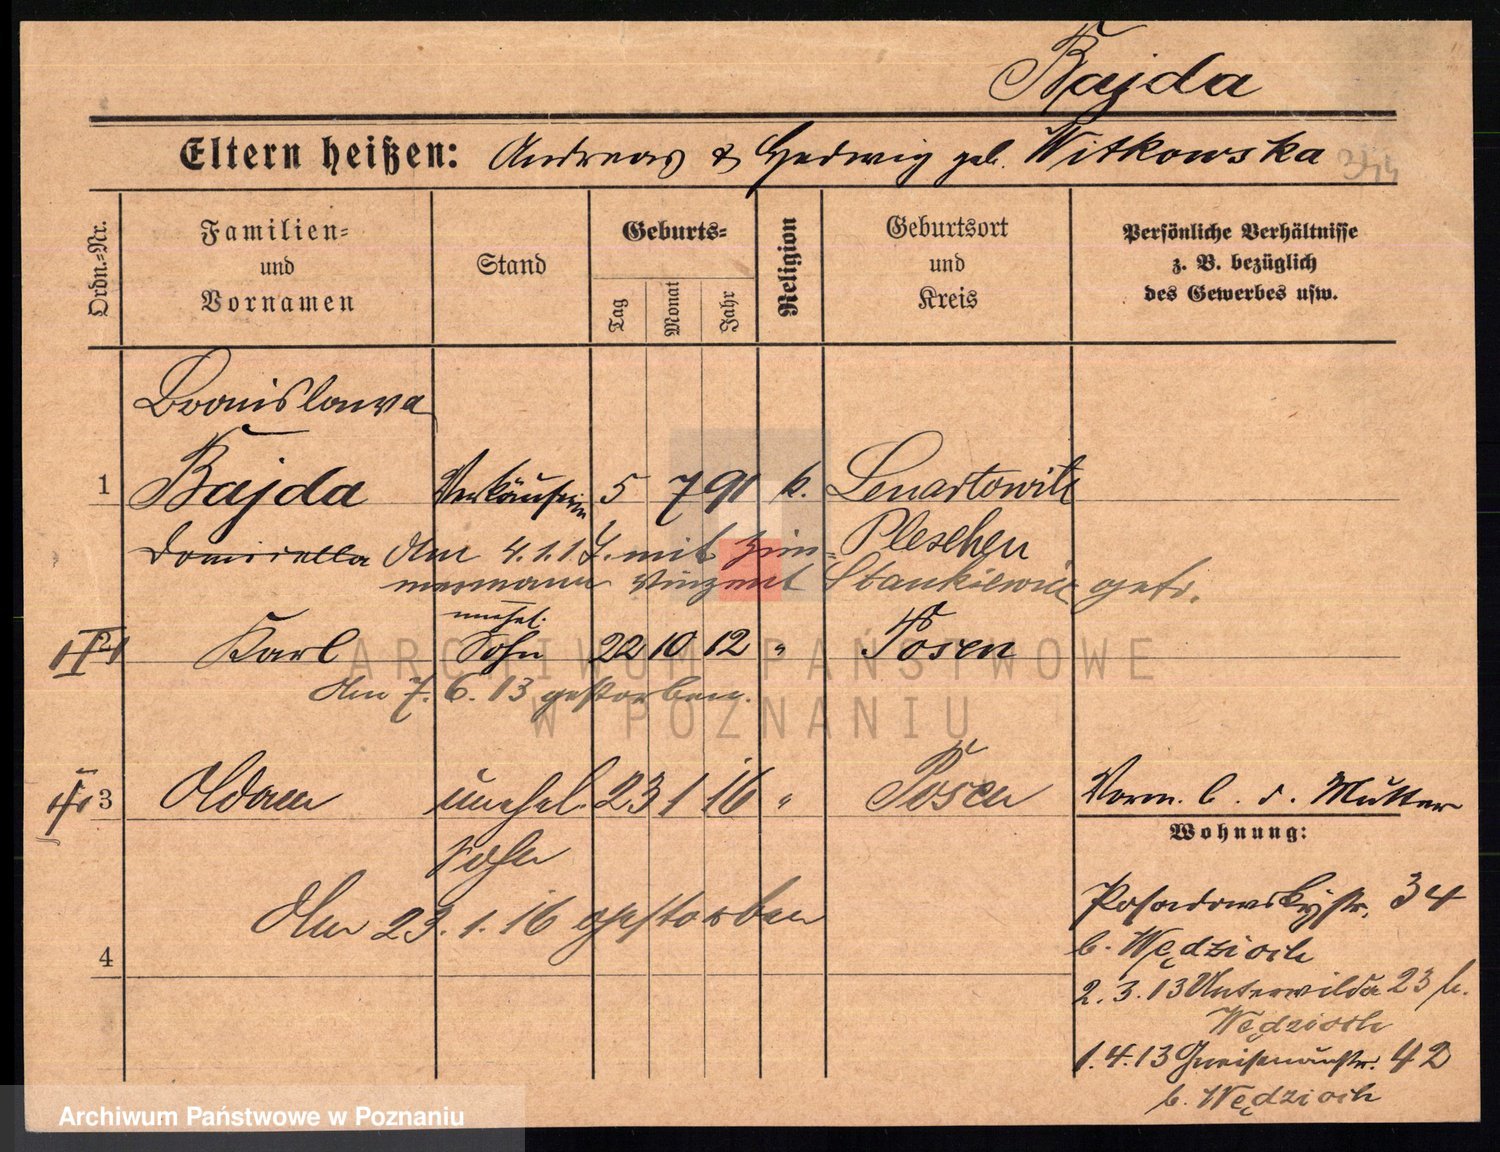 Bajda
Eltern heißen: Andreas & Hedwig geb. Witkowska
Ordn.-Nr.
Familien-
und
Vornamen
Stand
Geburts-
Tag
Monat
Jahr
Religion
Geburtsort
und
Kreis
Persönliche Verhältnisse
z. B. bezüglich
des Gewerbes usw.
Bronislawa
1 Bajda Verkäuferin 5 7 91 k. Lenartowitz
Pleschen
Am 4.1.17. mit Zim-
mermann Vinzent Stankiewicz getr.
unehel.
2 Karl Sohn 22 10 12 " Posen
Am 7. 6. 13 gestorben.
3 Adam unehel. 23 1 16 " Posen
Sohn
Am 23. 1. 16 gestorben
4
Vorm. b. d. Mutter
Wohnung:
Posadowskystr. 34
b. Wędzioch
2. 3. 13 Unterwilda 23 b.
Wędzioch
1. 4. 13 Gneisenaustr. 42
b. Wędzioch
ARCHIWUM PAŃSTWOWE
W POZNANIU
Archiwum Państwowe w Poznaniu